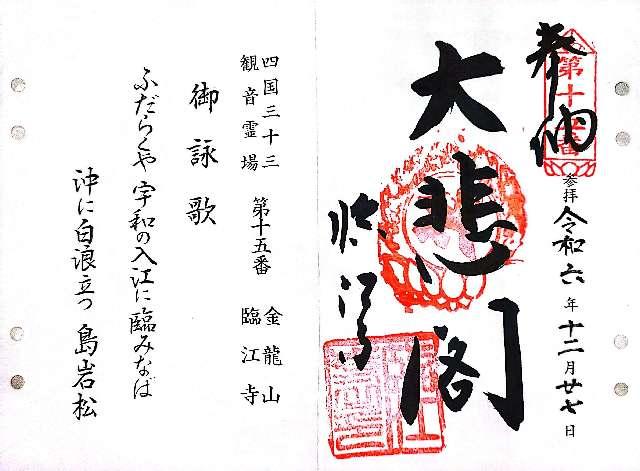 奉納
第十五番
参拝 令和六年十二月廿七日
大悲閣
臨江寺
四国三十三
観音霊場
第十五番
金龍山
臨江寺
御詠歌
ふだらくや 宇和の入江に臨みなば
沖に白浪立つ 島岩松